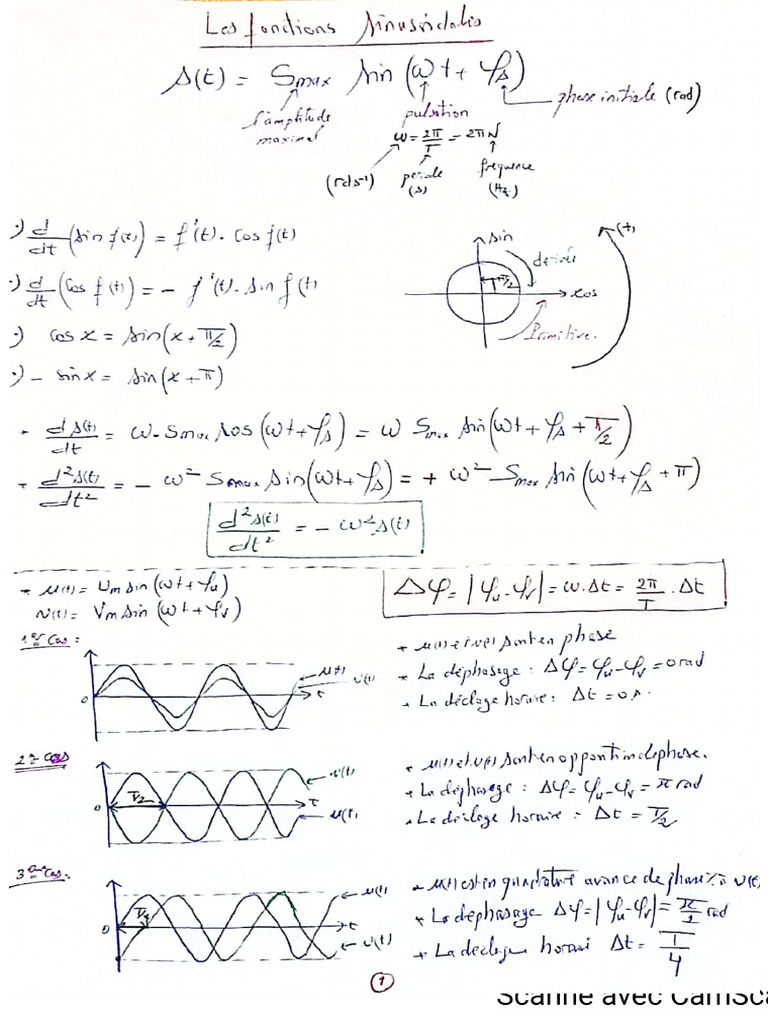 Les fonctions sinusoïdales
s(t) = Smax sin(ωt + φs)
l'amplitude maximal
pulsation
phase initiale (rad)
ω = 2π/T = 2πN
(rds⁻¹)
periode (s)
frequence (Hz)
•) d/dt (sin f(t)) = f'(t). cos f(t)
•) d/dt (cos f(t)) = - f'(t). sin f(t)
•) cos x = sin(x + π/2)
•) - sin x = sin(x + π)
sin
cos
derivée
Primitive.
π/2
(+)
ds(t)/dt = ω. Smax cos(ωt + φs) = ω Smax sin(ωt + φs + π/2)
d²s(t)/dt² = - ω² Smax sin(ωt + φs) = + ω² Smax sin(ωt + φs + π)
d²s(t)/dt² = - ω² s(t)
* u(t) = Um sin(ωt + φu)
v(t) = Vm sin(ωt + φv)
Δφ = |φu - φv| = ω.Δt = 2π/T . Δt
1er Cas :
0
u(t)
v(t)
t
* u(t) et v(t) sont en phase
* La déphasage : Δφ = φu - φv = 0 rad
* La déclage horaire : Δt = 0 s.
2e Cas
0
T/2
v(t)
t
u(t)
* u(t) et v(t) sont en
* La déphasage : Δφ = φu - φv = π rad
* La déclage horaire : Δt = T/2
3eme Cas.
0
T/4
u(t)
t
v(t)
* u(t) est en avance de phase % à v(t)
* La déphasage Δφ = |φu - φv| = π/2 rad
+ La déclage horair Δt = T/4
1
Scanné avec CamSca